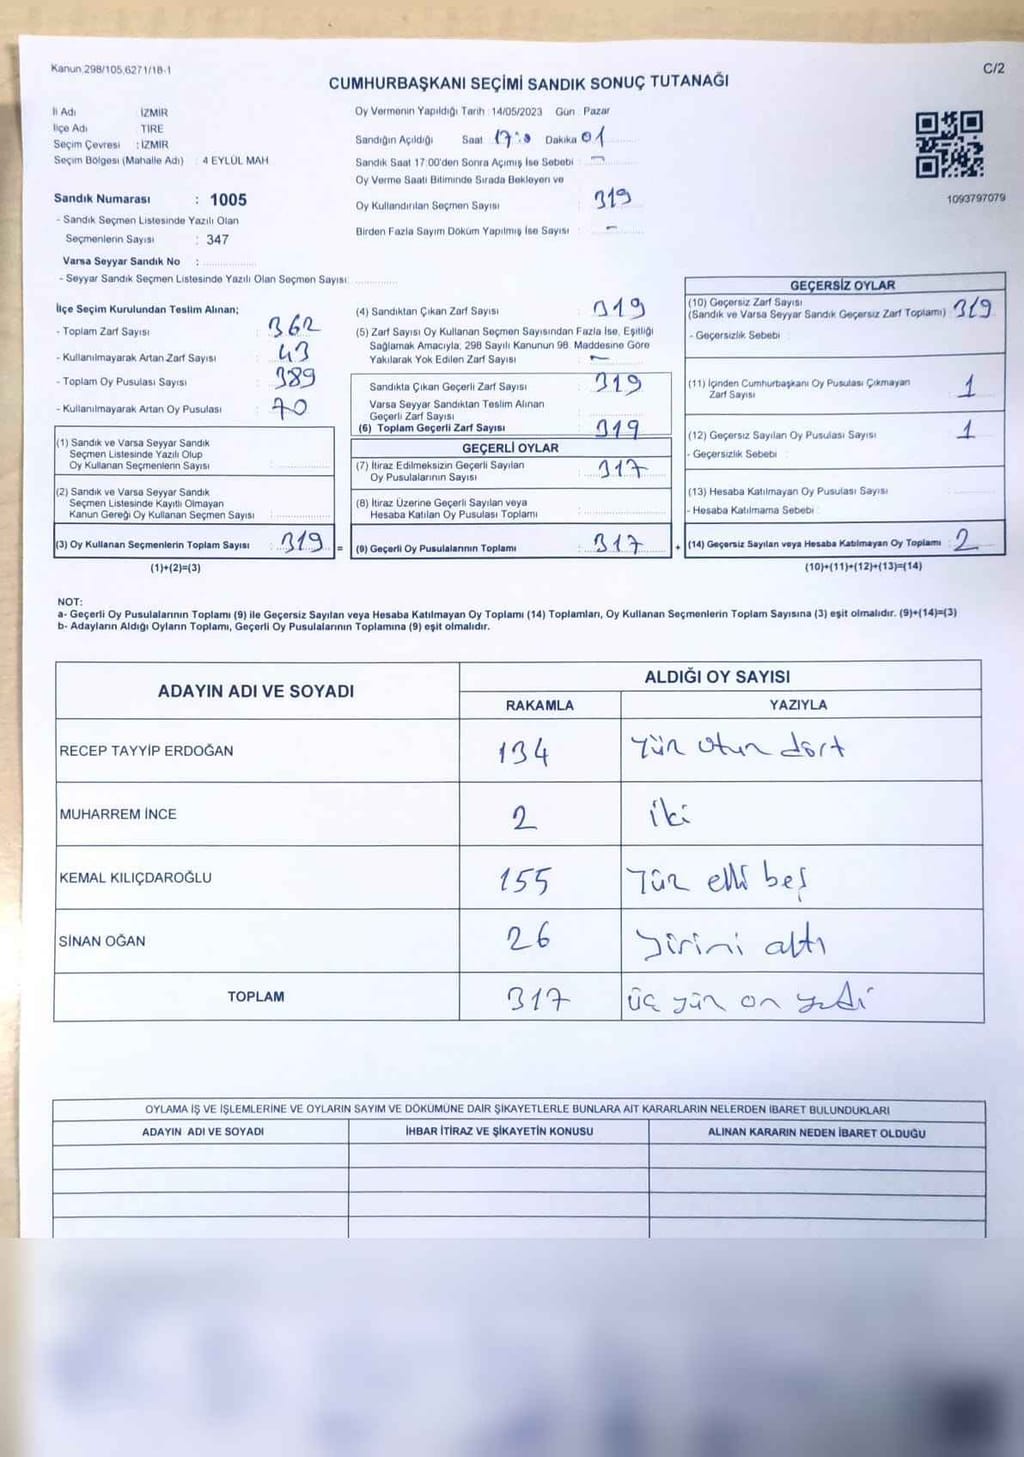 Kanun 298/105,6271/18-1
C/2
CUMHURBAŞKANI SEÇİMİ SANDIK SONUÇ TUTANAĞI
İl Adı İZMİR
İlçe Adı TİRE
Seçim Çevresi : İZMİR
Seçim Bölgesi (Mahalle Adı) : 4 EYLÜL MAH
Sandık Numarası : 1005
- Sandık Seçmen Listesinde Yazılı Olan
Seçmenlerin Sayısı : 347
Varsa Seyyar Sandık No :
- Seyyar Sandık Seçmen Listesinde Yazılı Olan Seçmen Sayısı:
Oy Vermenin Yapıldığı Tarih : 14/05/2023 Gün : Pazar
Sandığın Açıldığı Saat 17:0 Dakika 01
Sandık Saat 17:00'den Sonra Açımış İse Sebebi : -
Oy Verme Saati Bitiminde Sırada Bekleyen ve
Oy Kullandırılan Seçmen Sayısı : 319
Birden Fazla Sayım Döküm Yapılmış İse Sayısı : -
1093797079
İlçe Seçim Kurulundan Teslim Alınan;
- Toplam Zarf Sayısı : 362
- Kullanılmayarak Artan Zarf Sayısı : 43
- Toplam Oy Pusulası Sayısı : 389
- Kullanılmayarak Artan Oy Pusulası : 70
(1) Sandık ve Varsa Seyyar Sandık
Seçmen Listesinde Yazılı Olup
Oy Kullanan Seçmenlerin Sayısı :
(2) Sandık ve Varsa Seyyar Sandık
Seçmen Listesinde Kayıtlı Olmayan
Kanun Gereği Oy Kullanan Seçmen Sayısı :
(3) Oy Kullanan Seçmenlerin Toplam Sayısı : 319 =
(1)+(2)=(3)
(4) Sandıktan Çıkan Zarf Sayısı : 319
(5) Zarf Sayısı Oy Kullanan Seçmen Sayısından Fazla İse, Eşitliği
Sağlamak Amacıyla, 298 Sayılı Kanunun 98. Maddesine Göre
Yakılarak Yok Edilen Zarf Sayısı : -
Sandıkta Çıkan Geçerli Zarf Sayısı : 319
Varsa Seyyar Sandıktan Teslim Alınan
Geçerli Zarf Sayısı
(6) Toplam Geçerli Zarf Sayısı : 319
GEÇERLİ OYLAR
(7) İtiraz Edilmeksizin Geçerli Sayılan
Oy Pusulalarının Sayısı : 317
(8) İtiraz Üzerine Geçerli Sayılan veya
Hesaba Katılan Oy Pusulası Toplamı :
(9) Geçerli Oy Pusulalarının Toplamı : 317 +
GEÇERSİZ OYLAR
(10) Geçersiz Zarf Sayısı
(Sandık ve Varsa Seyyar Sandık Geçersiz Zarf Toplamı) : 319
- Geçersizlik Sebebi :
(11) İçinden Cumhurbaşkanı Oy Pusulası Çıkmayan
Zarf Sayısı : 1
(12) Geçersiz Sayılan Oy Pusulası Sayısı : 1
- Geçersizlik Sebebi :
(13) Hesaba Katılmayan Oy Pusulası Sayısı :
- Hesaba Katılmama Sebebi :
(14) Geçersiz Sayılan veya Hesaba Katılmayan Oy Toplamı : 2
(10)+(11)+(12)+(13)=(14)
NOT:
a- Geçerli Oy Pusulalarının Toplamı (9) ile Geçersiz Sayılan veya Hesaba Katılmayan Oy Toplamı (14) Toplamları, Oy Kullanan Seçmenlerin Toplam Sayısına (3) eşit olmalıdır. (9)+(14)=(3)
b- Adayların Aldığı Oyların Toplamı, Geçerli Oy Pusulalarının Toplamına (9) eşit olmalıdır.
ADAYIN ADI VE SOYADI
ALDIĞI OY SAYISI
RAKAMLA YAZIYLA
RECEP TAYYİP ERDOĞAN 134 Yüz otuz dört
MUHARREM İNCE 2 iki
KEMAL KILIÇDAROĞLU 155 Yüz elli beş
SİNAN OĞAN 26 yirmi altı
TOPLAM 317 üç yüz on yedi
OYLAMA İŞ VE İŞLEMLERİNE VE OYLARIN SAYIM VE DÖKÜMÜNE DAİR ŞİKAYETLERLE BUNLARA AİT KARARLARIN NELERDEN İBARET BULUNDUKLARI
ADAYIN ADI VE SOYADI İHBAR İTİRAZ VE ŞİKAYETİN KONUSU ALINAN KARARIN NEDEN İBARET OLDUĞU